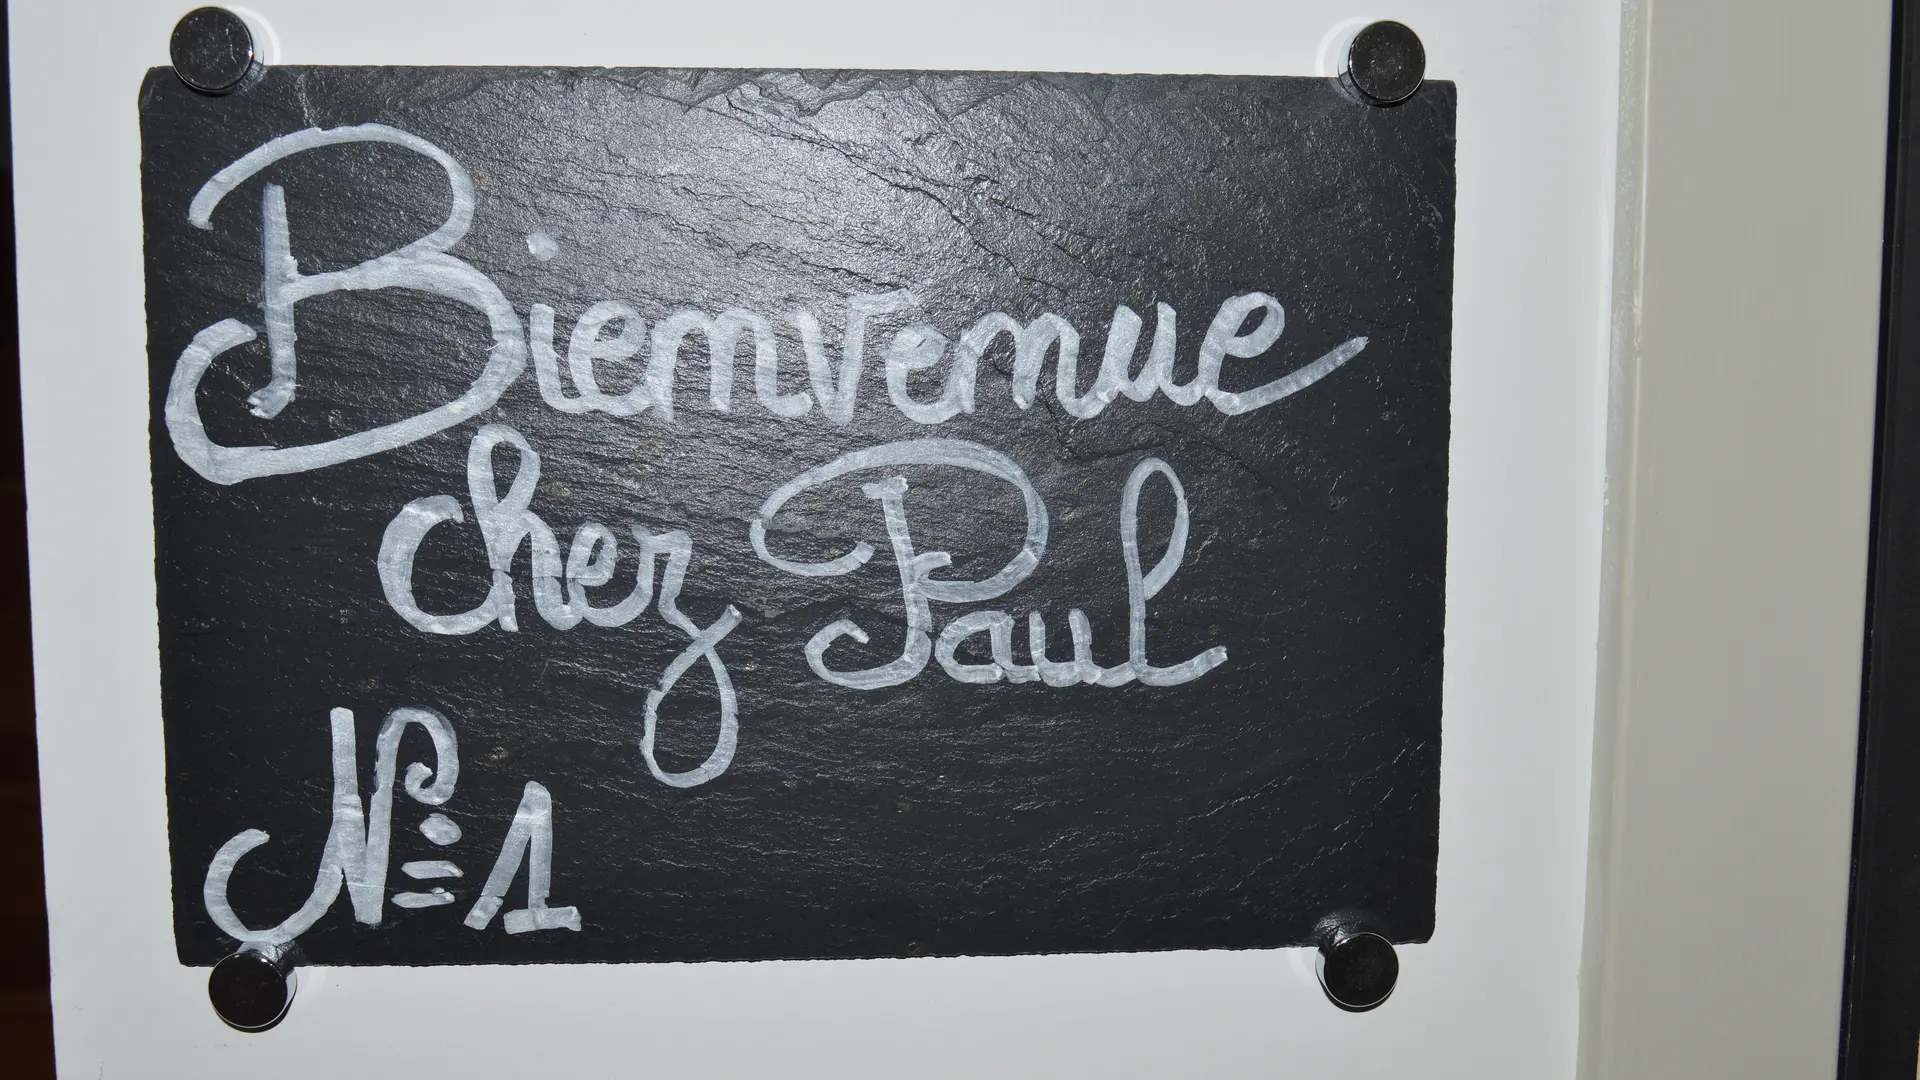 Bienvenue
chez Paul
N°1